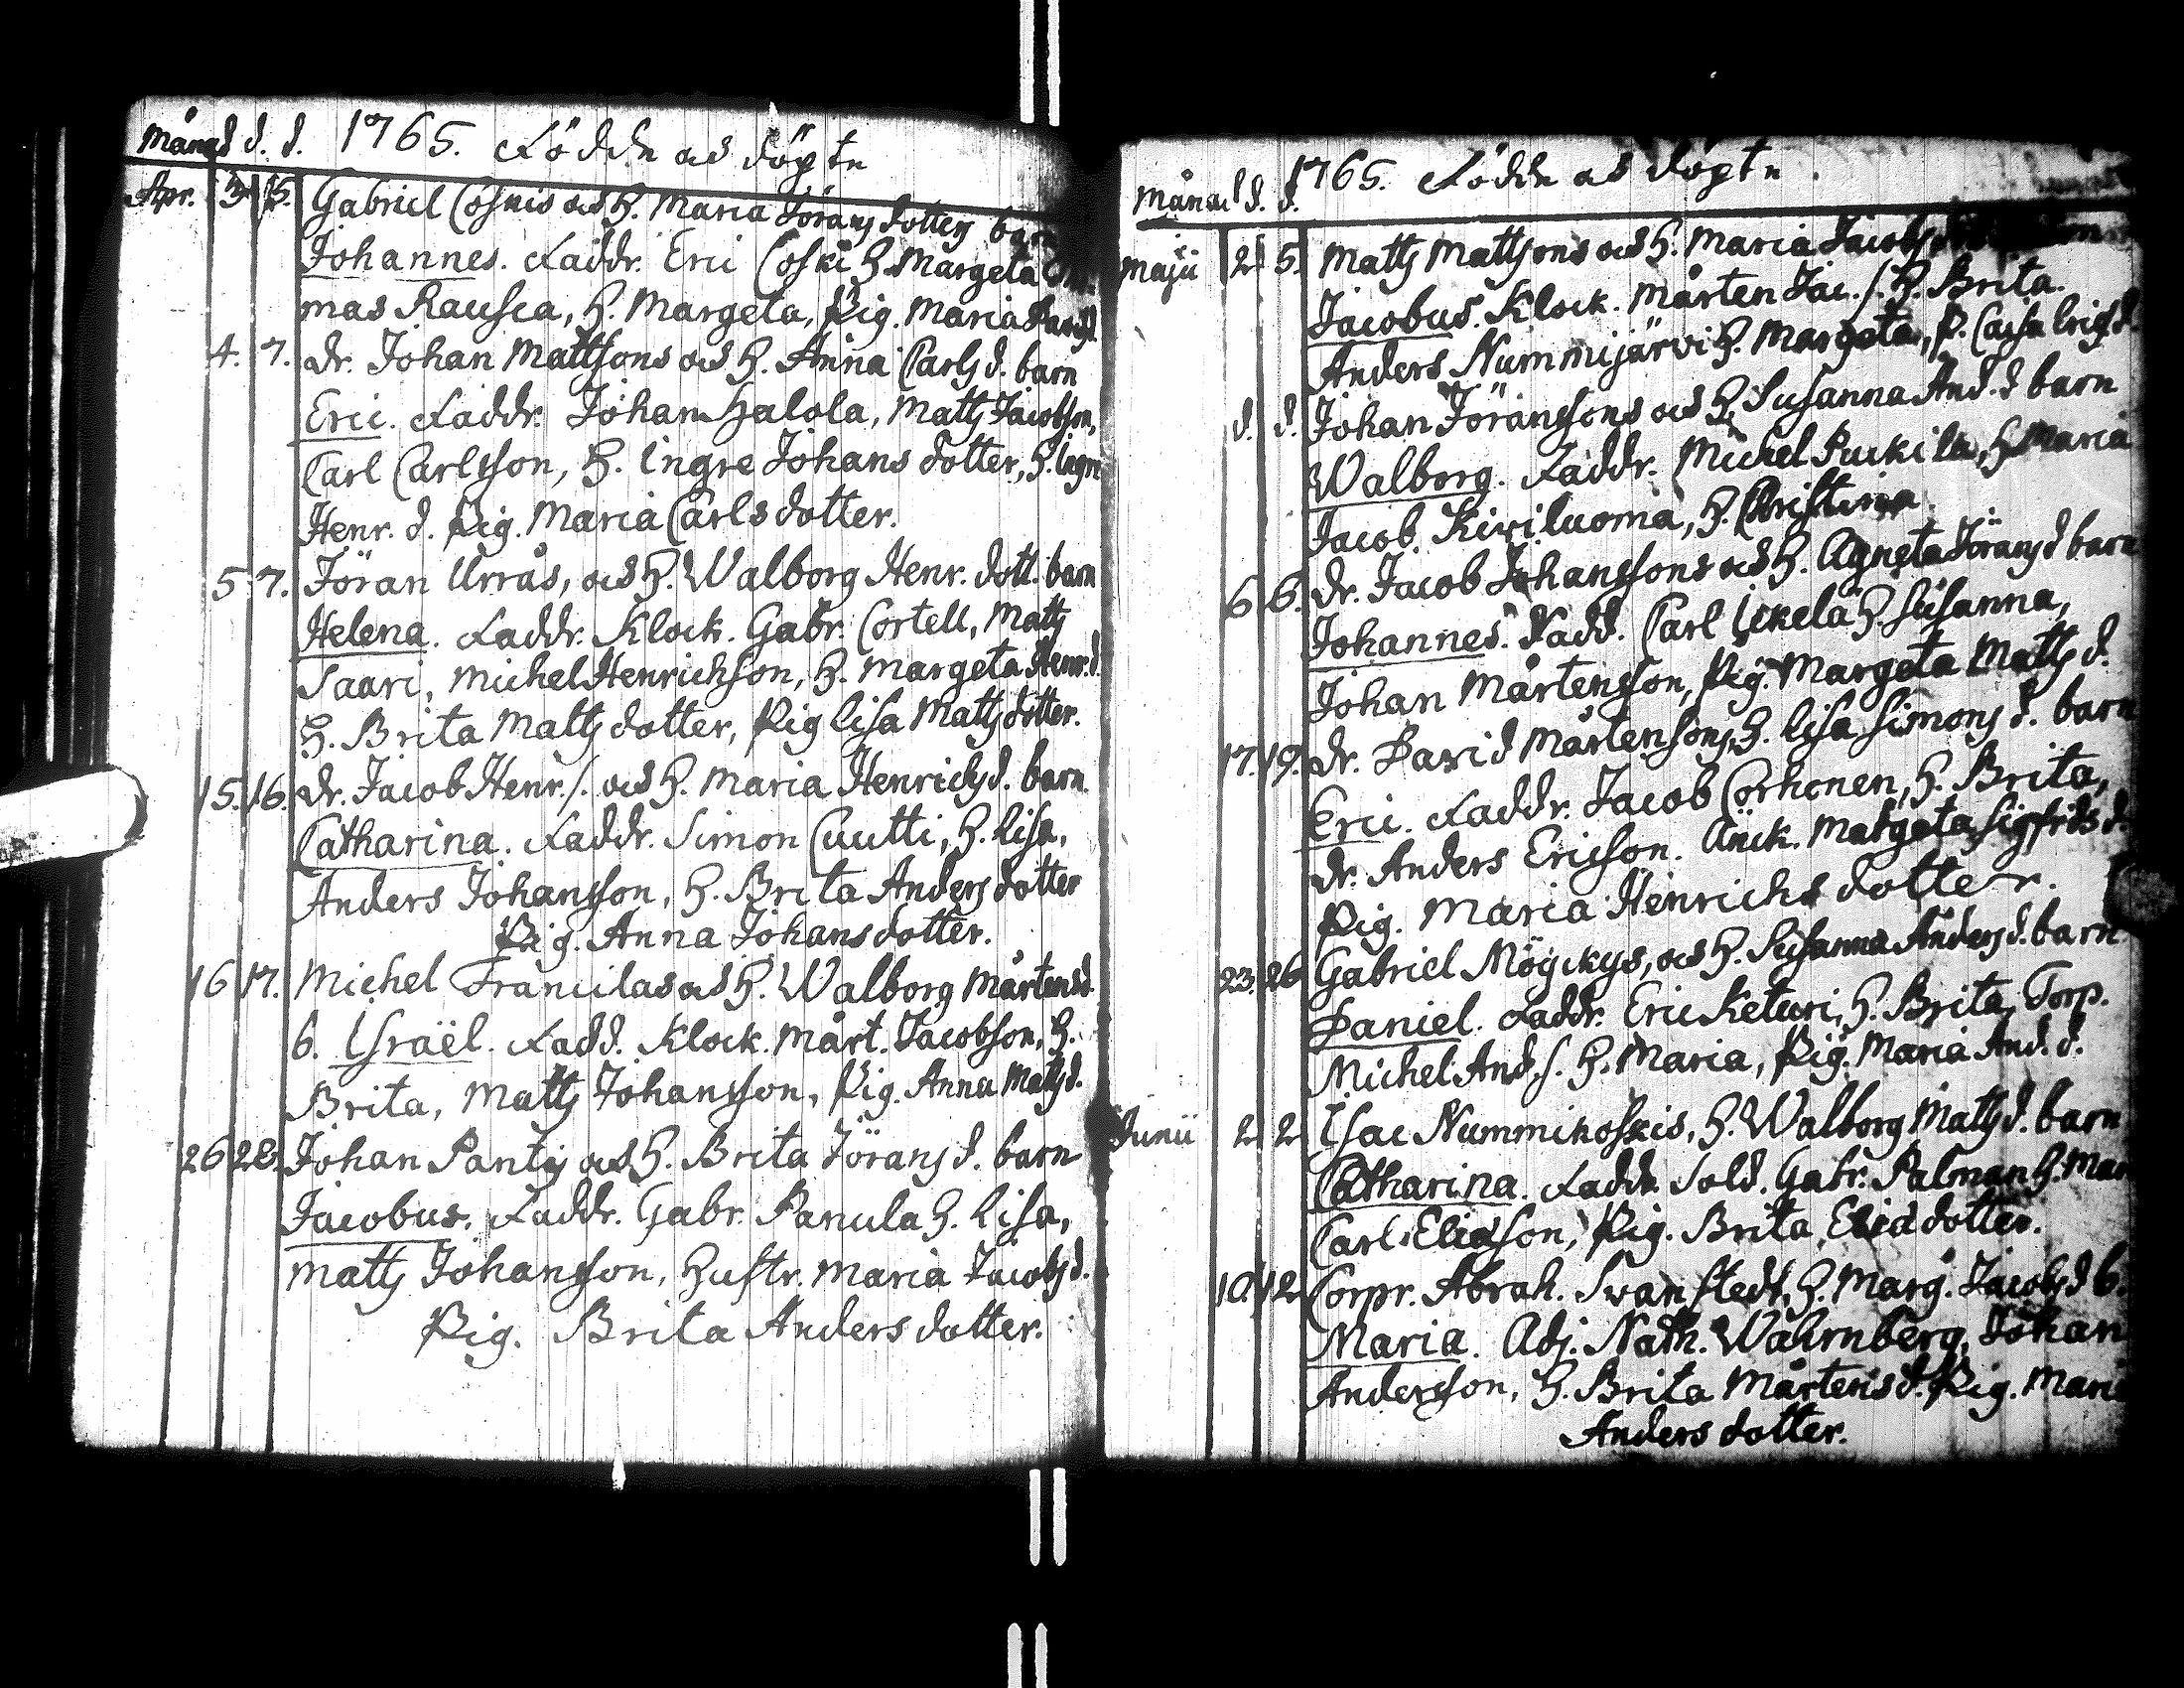 Månad d. d. 1765. Födde och döpte
Apr. 3 5. Gabriel Coskis och H. Maria Jörans dotters barn
Johannes. Faddr. Eric Coski H. Margeta
mas Rausca, H. Margeta, Pig. Maria
4. 7. dr. Johan Mattssons och H. Anna Carls d. barn
Eric. Faddr. Johan Halola, Matts Jacobson,
Carl Carlsson, H. Ingre Johans dotter, H. Ingr
Henr. d. Pig. Maria Carls dotter.
5 7. Jöran Urrås, och H. Walborg Henr. dott. barn
Helena. Faddr. Klock. Gabr. Cortell, Matts
Saari, Michel Henrichson, H. Margeta Henr. d.
H. Brita Matts dotter, Pig Lisa Matts dotter.
15. 16. dr. Jacob Henr. s. och H. Maria Henrichs d. barn
Catharina. Faddr. Simon Cuutti, H. Lisa,
Anders Johansson, H. Brita Anders dotter
Pig. Anna Johans dotter.
16 17. Michel Francilas och H. Walborg Mårtens d.
b. Israël. Fadd. Klock. Mårt. Jacobson, H.
Brita, Matts Johansson, Pig. Anna Matts d.
26 28. Johan Pantis och H. Brita Jörans d. barn
Jacobus. Faddr. Gabr. Panula H. Lisa,
Matts Johansson, Hustr. Maria Jacobs d.
Pig. Brita Anders dotter.
Månad d. d. 1765. Födde och döpte
Maji 2 5. Matts Mattsons och H. Maria Jacobs
Jacobus. Klock. Mårten Jac. s. H. Brita.
Anders Nummijärvi H. Margeta, P. Caisa Erics d.
d. d. Johan Jöranssons och H. Susanna And. d barn
Walborg. Faddr. Michel Puckila, H Maria
Jacob Kiviluoma, H. Christina
6 6. dr. Jacob Johanssons och H. Agneta Jörans d barn
Johannes. Fadd. Carl Ickelä H. Susanna,
Johan Mårtensson, Pig. Margeta Matts d.
17. 19. dr. David Mårtensons, H. Lisa Simons d. barn
Eric. Faddr. Jacob Corhonen, H. Brita,
dr. Anders Ericson. Änck. Margeta Sigfrids d.
Pig. Maria Henrichs dotter.
23. 26 Gabriel Möyckys, och H. Susanna Anders d. barn
Daniel. Faddr. Eric Keturi, H. Brita, Torp.
Michel And. s. H. Maria, Pig. Maria And. d.
Junii 2 2 Isac Nummikoskis, H. Walborg Matts d. barn
Catharina. Faddr. Sold. Gabr. Palman H. Mar
Carl Eliasson, Pig. Brita Elia dotter.
10. 12 Corpr. Abrah. Svanstedt, H. Marg. Jacobs d b.
Maria. Adj. Nath. Wahrnberg, Johan
Andersson, H. Brita Mårtens d. Pig. Maria
Anders dotter.